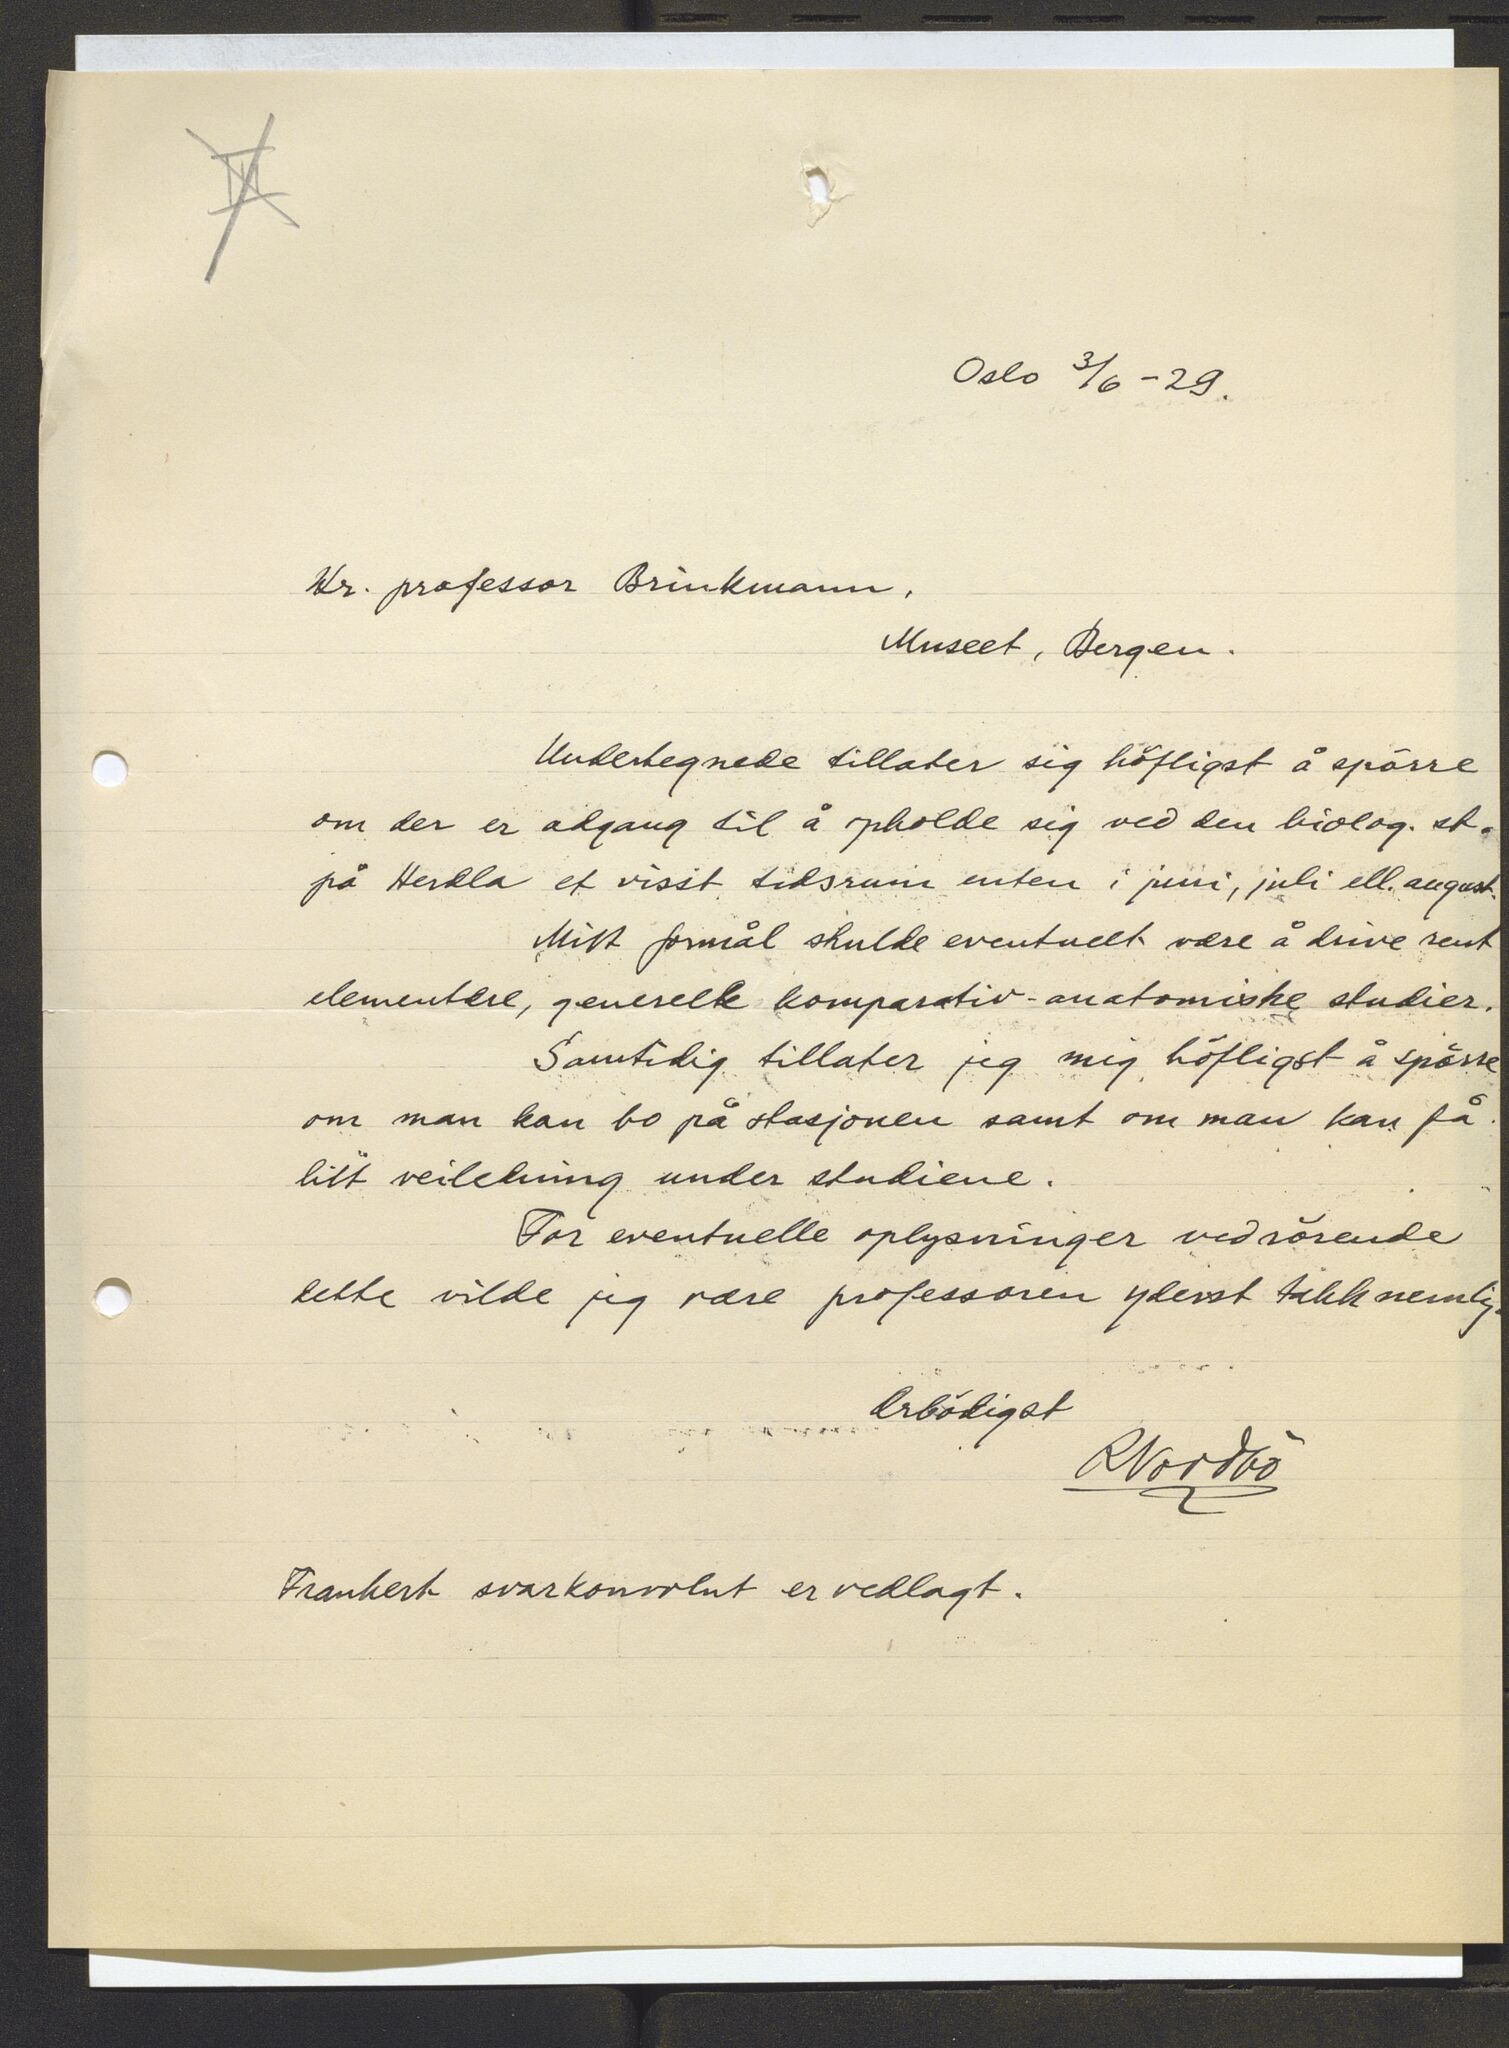 Oslo 3/6 - 29.
Hr. professor Brinkmann,
Museet, Bergen.
Undertegnede tillater sig höfligst å spörre
om der er adgang til å opholde sig ved den biolog. st.
på Herdla et visst tidsrum enten i juni, juli ell. august.
Mitt formål skulde eventuelt være å drive rent
elementære, generelle komparativ-anatomiske studier.
Samtidig tillater jeg mig höfligst å spörre
om man kan bo på stasjonen samt om man kan få
litt veiledning under studiene.
For eventuelle oplysninger vedrörende
dette vilde jeg være professoren yderst takknemlig.
Ærbödigst
RNordbö
Frankert svarkonvolut er vedlagt.